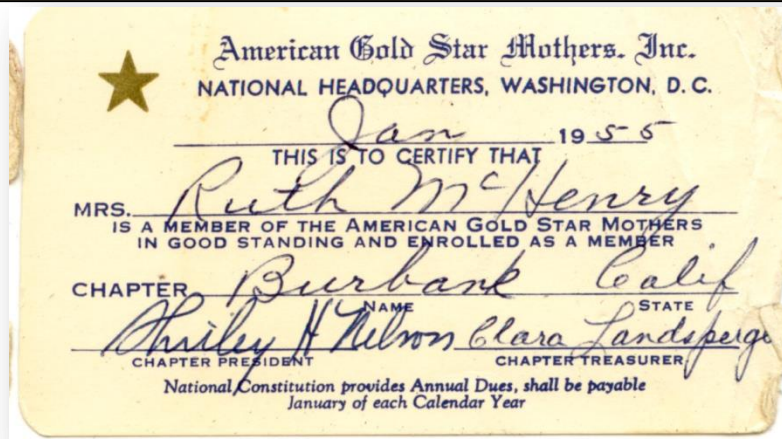 American Gold Star Mothers. Inc.
NATIONAL HEADQUARTERS, WASHINGTON, D. C.
Jan 1955
THIS IS TO CERTIFY THAT
MRS. Ruth McHenry
IS A MEMBER OF THE AMERICAN GOLD STAR MOTHERS
IN GOOD STANDING AND ENROLLED AS A MEMBER
CHAPTER Burbank Calif
NAME STATE
Shirley H Nelson Clara Landsperge
CHAPTER PRESIDENT CHAPTER TREASURER
National Constitution provides Annual Dues, shall be payable
January of each Calendar Year